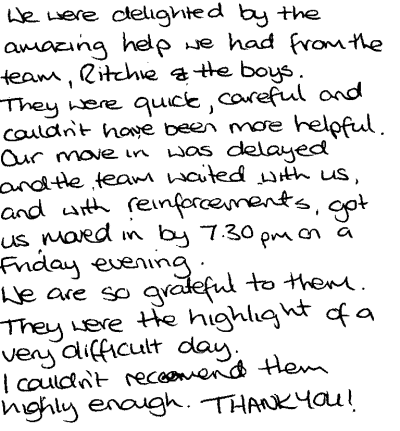 We were delighted by the
amazing help we had from the
team, Ritchie & the boys.
They were quick, careful and
couldn't have been more helpful.
Our move in was delayed
and the team waited with us,
and with reinforcements, got
us moved in by 7.30 pm on a
Friday evening.
We are so grateful to them.
They were the highlight of a
very difficult day.
I couldn't recommend them
highly enough. THANKYOU!